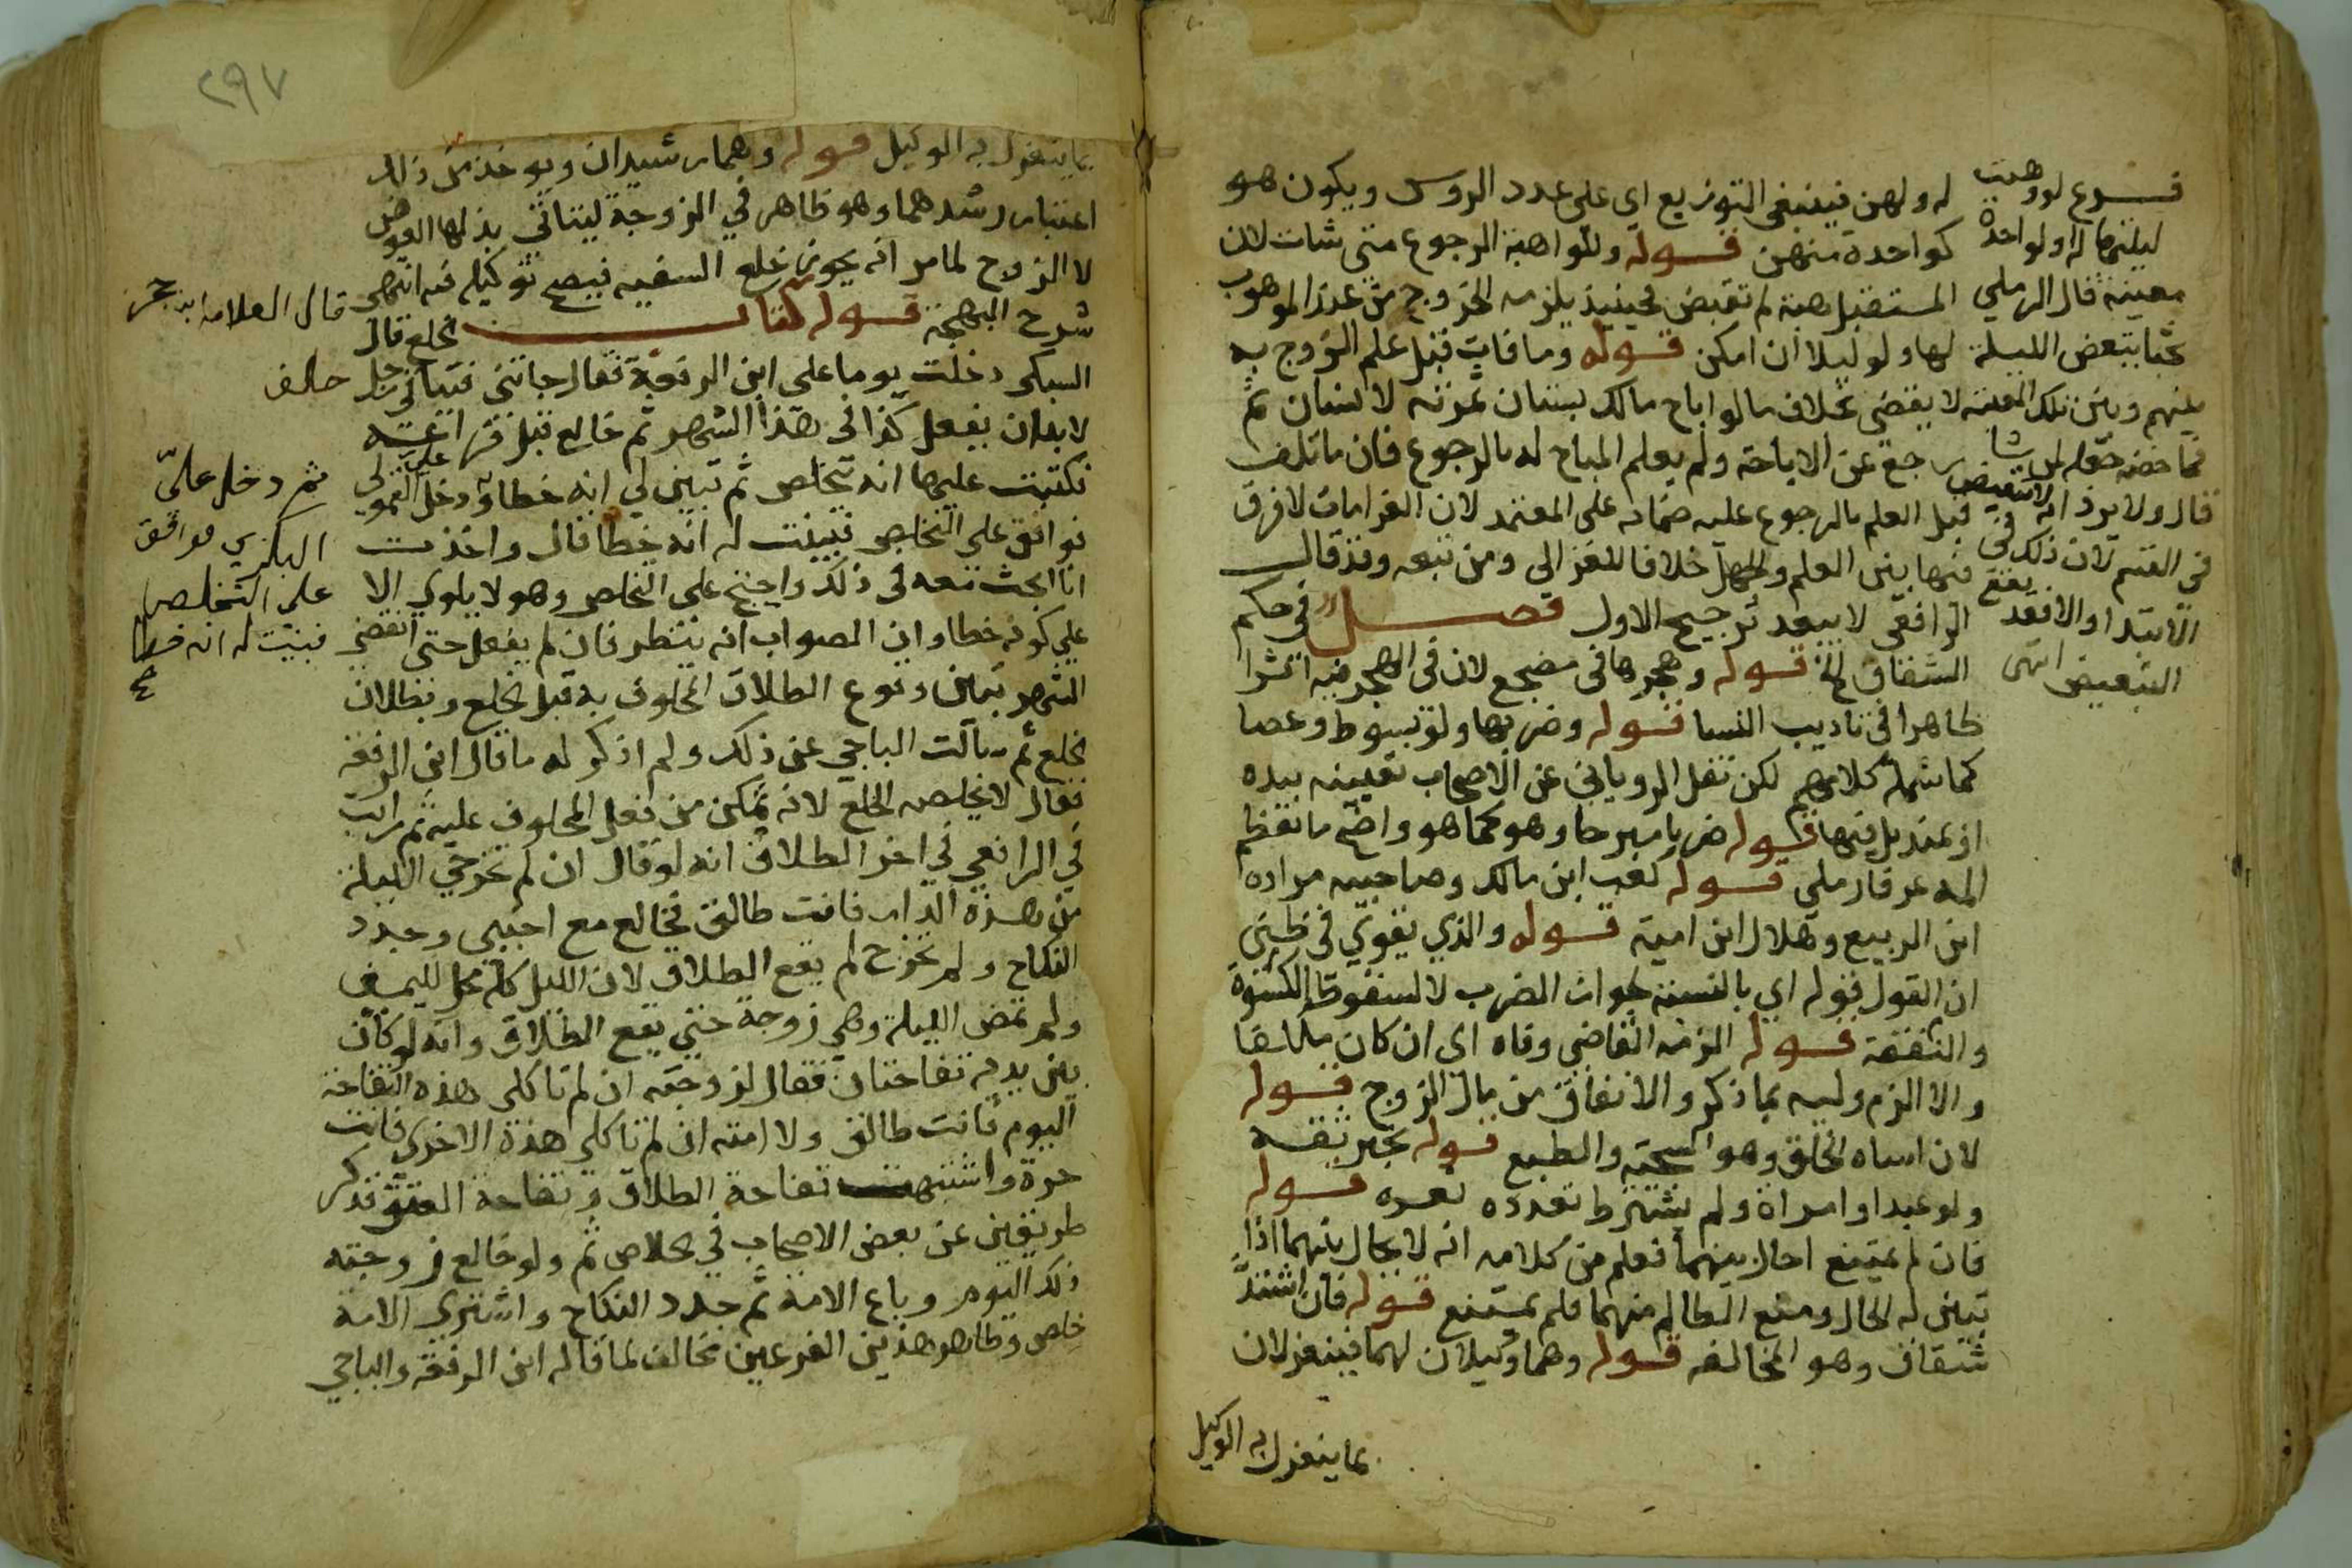 له ولهن فينبغي التوزيع اي على عدد الروس ويكون هو
كواحدة منهن قوله وللواهبة الرجوع متى شات لان
المستقبل هبة لم تقبض فحينيذ يلزمه الخروج من عند الموهوب
لها ولو ليلا ان امكن قوله وما فات قبل علم الزوج به
لا يقضى بخلاف ما لو اباح مالك بستان ثمرته لانسان ثم
رجع عن الاباحة ولم يعلم المباح له بالرجوع فان ما تلف
قبل العلم بالرجوع عليه ضمانه على المعتمد لان الغرامات لا فرق
فيها بين العلم والجهل خلافا للغزالي ومن تبعه وقد قال
الرافعي لا يبعد ترجيح الاول فصل في حكم
الشقاق الخ قوله وهجرها في مضجع لان في الهجر فيه اثرا
ظاهرا في تاديب النسا قوله وضربها ولو بسوط وعصا
كما شمله كلامهم لكن نقل الروياني عن الاصحاب تعيينه بيده
او بمنديل فيها قوله ضربا مبرحا وهو كما هو واضح ما يعظم
المه عرفا رملي قوله كعب ابن مالك وصاحبيه مراده
ابن الربيع وهلال ابن امية قوله والذي يقوي في ظني
ان القول قوله اي بالنسبة لجواز الضرب لا لسقوط الكسوة
والنفقة قوله الزمه القاضي وفاه اي ان كان مكلفا
والا الزم وليه بما ذكر والانفاق من مال الزوج قوله
لان اساه الخلق وهو السجية والطبع قوله بخبر ثقة
ولو عبدا او امراة ولم يشترط تعدده قوله
فان لم يمتنع احال بينهما فعلم من كلامه انه لا يحال بينهما اذا
تبين له الحال ومنع الظالم منهما فلم يمتنع قوله فان اشتد
شقاق وهو المخالفه قوله وهما وكيلان لهما فينعزلان
بما ينعزل به الوكيل
فرع لو وهبت
ليلتها له او لواحدة
معينة قال الرملي
بحثا بتبعض الليلة
بينهم وبين تلك المعينه
فما خصه جعله لمن شا
قال ولا يرد انه لا تبعيض
في القسم لان ذلك في
الابتدا والا فقد يقع
التبعيض انتهى
٢٩٧
بما ينعزل به الوكيل قوله وهما رشيدان ويوخذ من ذلك
اعتبار رشدهما وهو ظاهر في الزوجة ليتاتى بذلها العوض
لا الزوج لما مر انه يجوز خلع السفيه فيصح توكيله فيه انتهى
شرح البهجة قوله كتاب الخلع قال
السبكي دخلت يوما على ابن الرفعة فقال جاتني فتيا في رجل حلف
لا بد ان يفعل كذا في هذا الشهر ثم خالع قبل فراغه
فكتبت عليها انه يتخلص ثم تبين لي انه خطا ودخل على القمولي
فوافق على التخلص فبينت له انه خطا قال واخذت
انا ابحث معه في ذلك واجنح على التخلص وهو لا يلوي الا
على كونه خطا وان الصواب انه ينتظر فان لم يفعل حتى انقضى
الشهر تبين وقوع الطلاق المحلوف به قبل الخلع وبطلان
الخلع ثم سالت الباجي عن ذلك ولم اذكر له ما قال ابن الرفعة
فقال لا يخلصه الخلع لانه تمكن من فعل المحلوف عليه ثم رايت
في الرافعي في اخر الطلاق انه لو قال ان لم تخرجي الليلة
من هذه الدار فانت طالق فخالع مع اجنبي وجدد
النكاح ولم تخرج لم يقع الطلاق لان الليل كله محل لليمين
ولم تمض الليلة وهي زوجة حتى يقع الطلاق وانه لو كان
بين يديه تفاحتان فقال لزوجته ان لم تاكلي هذه التفاحة
اليوم فانت طالق ولامته ان لم تاكلي هذة الاخرى فانت
حرة واشتبهت تفاحة الطلاق وتفاحة العتق فذكر
طريقين عن بعض الاصحاب في الخلاص ثم ولو خالع زوجته
ذلك اليوم وباع الامة ثم جدد النكاح واشترى الامة
خلص وظاهر هذين الفرعين مخالف لما قاله ابن الرفعة والباجي
قال العلامة ابن حجر
ثم دخل علي
البكري فوافق
على التخلص
فبينت له انه خطا
صح